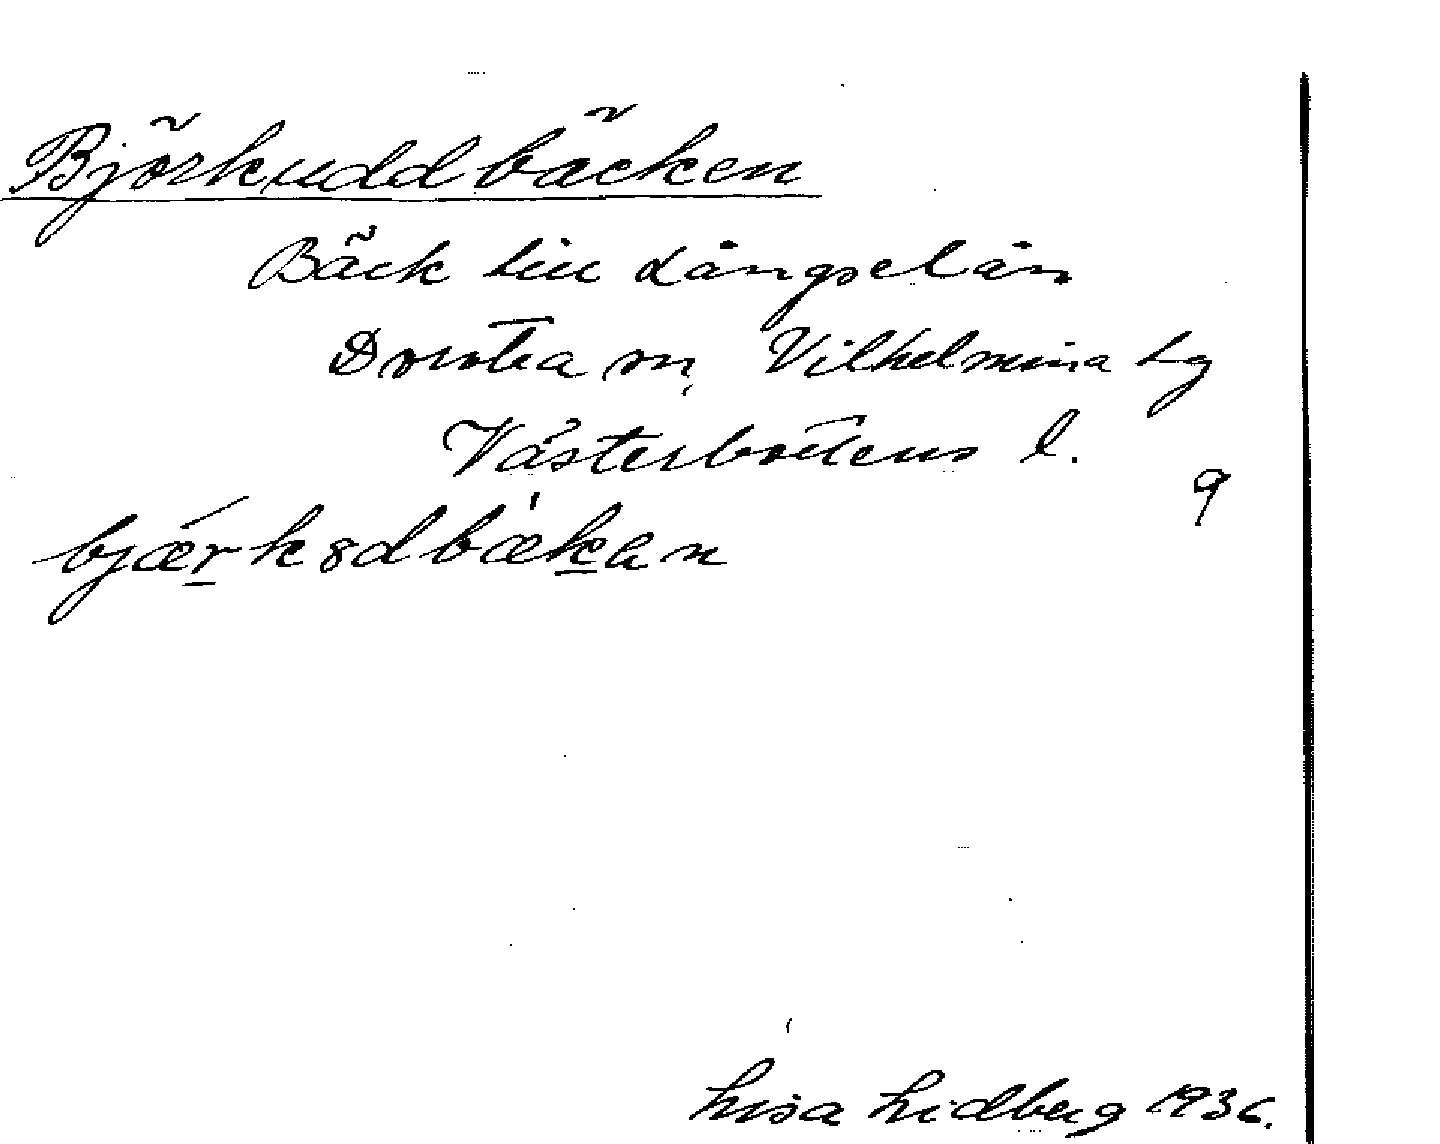 Björkuddbäcken
Bäck till Långselån
Dorotea m. Vilhelmina tg
Västerbottens l.
9
bjǽr̲k8dbæ̍k̲an
Lisa Lidberg 1936.